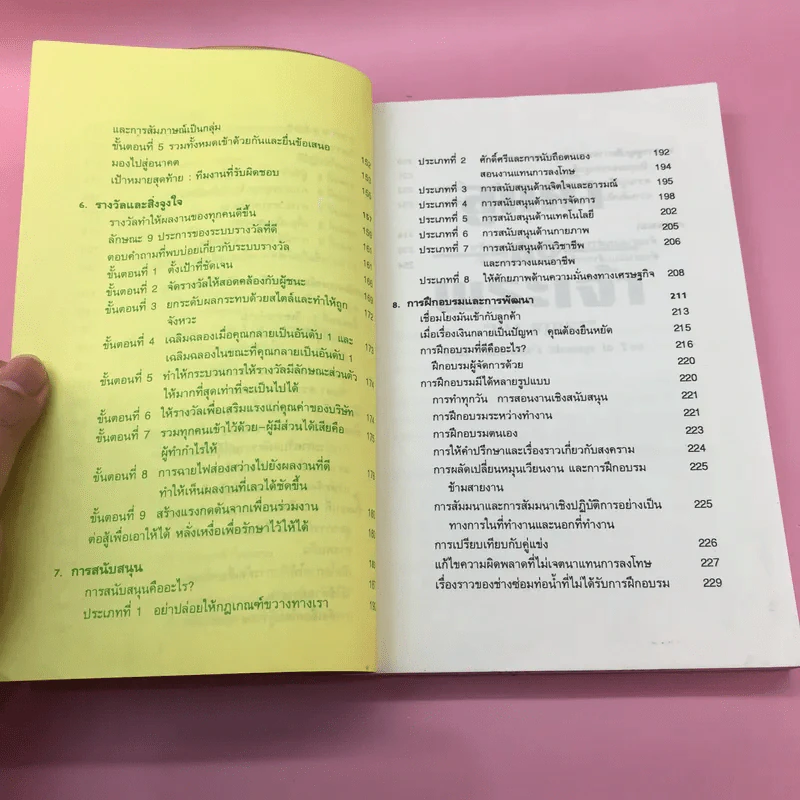 และการสัมภาษณ์เป็นกลุ่ม
ขั้นตอนที่ 5 รวมทั้งหมดเข้าด้วยกันและยื่นข้อเสนอ
มองไปสู่อนาคต
เป้าหมายสุดท้าย : ทีมงานที่รับผิดชอบ
6. รางวัลและสิ่งจูงใจ
รางวัลทำให้ผลงานของทุกคนดีขึ้น
ลักษณะ 9 ประการของระบบรางวัลที่ดี
ตอบคำถามที่พบบ่อยเกี่ยวกับระบบรางวัล
ขั้นตอนที่ 1 ตั้งเป้าที่ชัดเจน
ขั้นตอนที่ 2 จัดรางวัลให้สอดคล้องกับผู้ชนะ
ขั้นตอนที่ 3 ยกระดับผลกระทบด้วยสไตล์และทำให้ถูก
จังหวะ 172
ขั้นตอนที่ 4 เฉลิมฉลองเมื่อคุณกลายเป็นอันดับ 1 และ
เฉลิมฉลองในขณะที่คุณกลายเป็นอันดับ 1
ขั้นตอนที่ 5 ทำให้กระบวนการให้รางวัลมีลักษณะส่วนตัว
ให้มากที่สุดเท่าที่จะเป็นไปได้
ขั้นตอนที่ 6 ให้รางวัลเพื่อเสริมแรงแก่คุณค่าของบริษัท
ขั้นตอนที่ 7 รวมทุกคนเข้าไว้ด้วย-ผู้มีส่วนได้เสียคือ
ผู้ทำกำไรให้
ขั้นตอนที่ 8 การฉายไฟส่องสว่างไปยังผลงานที่ดี
ทำให้เห็นผลงานที่เลวได้ชัดขึ้น
ขั้นตอนที่ 9 สร้างแรงกดดันจากเพื่อนร่วมงาน
ต่อสู้เพื่อเอาให้ได้ หลั่งเหงื่อเพื่อรักษาไว้ให้ได้
7. การสนับสนุน
การสนับสนุนคืออะไร?
ประเภทที่ 1 อย่าปล่อยให้กฎเกณฑ์ขวางทางเรา
ประเภทที่ 2 ศักดิ์ศรีและการนับถือตนเอง 192
สอนงานแทนการลงโทษ 194
ประเภทที่ 3 การสนับสนุนด้านจิตใจและอารมณ์ 195
ประเภทที่ 4 การสนับสนุนด้านการจัดการ 198
ประเภทที่ 5 การสนับสนุนด้านเทคโนโลยี 202
ประเภทที่ 6 การสนับสนุนด้านกายภาพ 205
ประเภทที่ 7 การสนับสนุนด้านวิชาชีพ 206
และการวางแผนอาชีพ
ประเภทที่ 8 ให้ศักยภาพด้านความมั่นคงทางเศรษฐกิจ 208
8. การฝึกอบรมและการพัฒนา 211
เชื่อมโยงมันเข้ากับลูกค้า 213
เมื่อเรื่องเงินกลายเป็นปัญหา คุณต้องยืนหยัด 215
การฝึกอบรมที่ดีคืออะไร? 216
ฝึกอบรมผู้จัดการด้วย 220
การฝึกอบรมมีได้หลายรูปแบบ 220
การทำทุกวัน การสอนงานเชิงสนับสนุน 221
การฝึกอบรมระหว่างทำงาน 221
การฝึกอบรมตนเอง 223
การให้คำปรึกษาและเรื่องราวเกี่ยวกับสงคราม 224
การผลัดเปลี่ยนหมุนเวียนงาน และการฝึกอบรม 225
ข้ามสายงาน
การสัมมนาและการสัมมนาเชิงปฏิบัติการอย่างเป็น 225
ทางการในที่ทำงานและนอกที่ทำงาน
การเปรียบเทียบกับคู่แข่ง 226
แก้ไขความผิดพลาดที่ไม่เจตนาแทนการลงโทษ 227
เรื่องราวของช่างซ่อมท่อน้ำที่ไม่ได้รับการฝึกอบรม 229